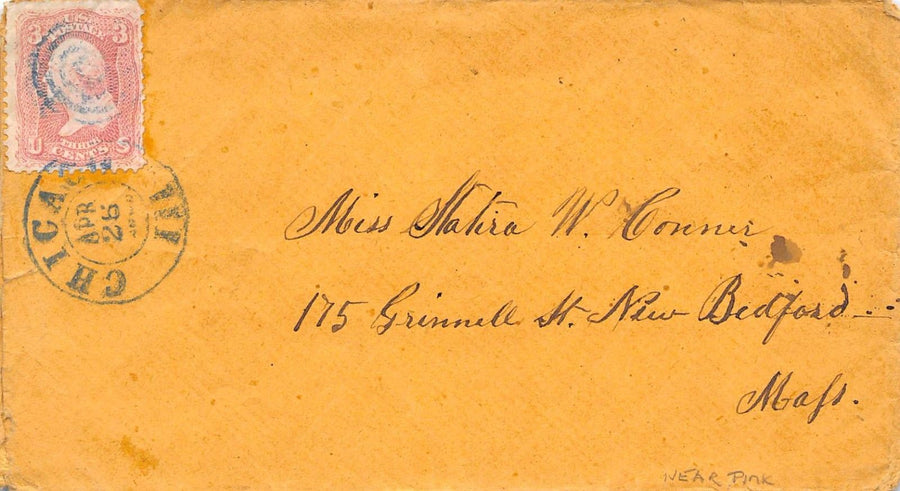 3 U.S. 3
POSTAGE
U CENTS S
CHICAGO ILL
APR
26
Miss Statira W. Conner
175 Grinnell St. New Bedford
Mass.
NEAR PINK